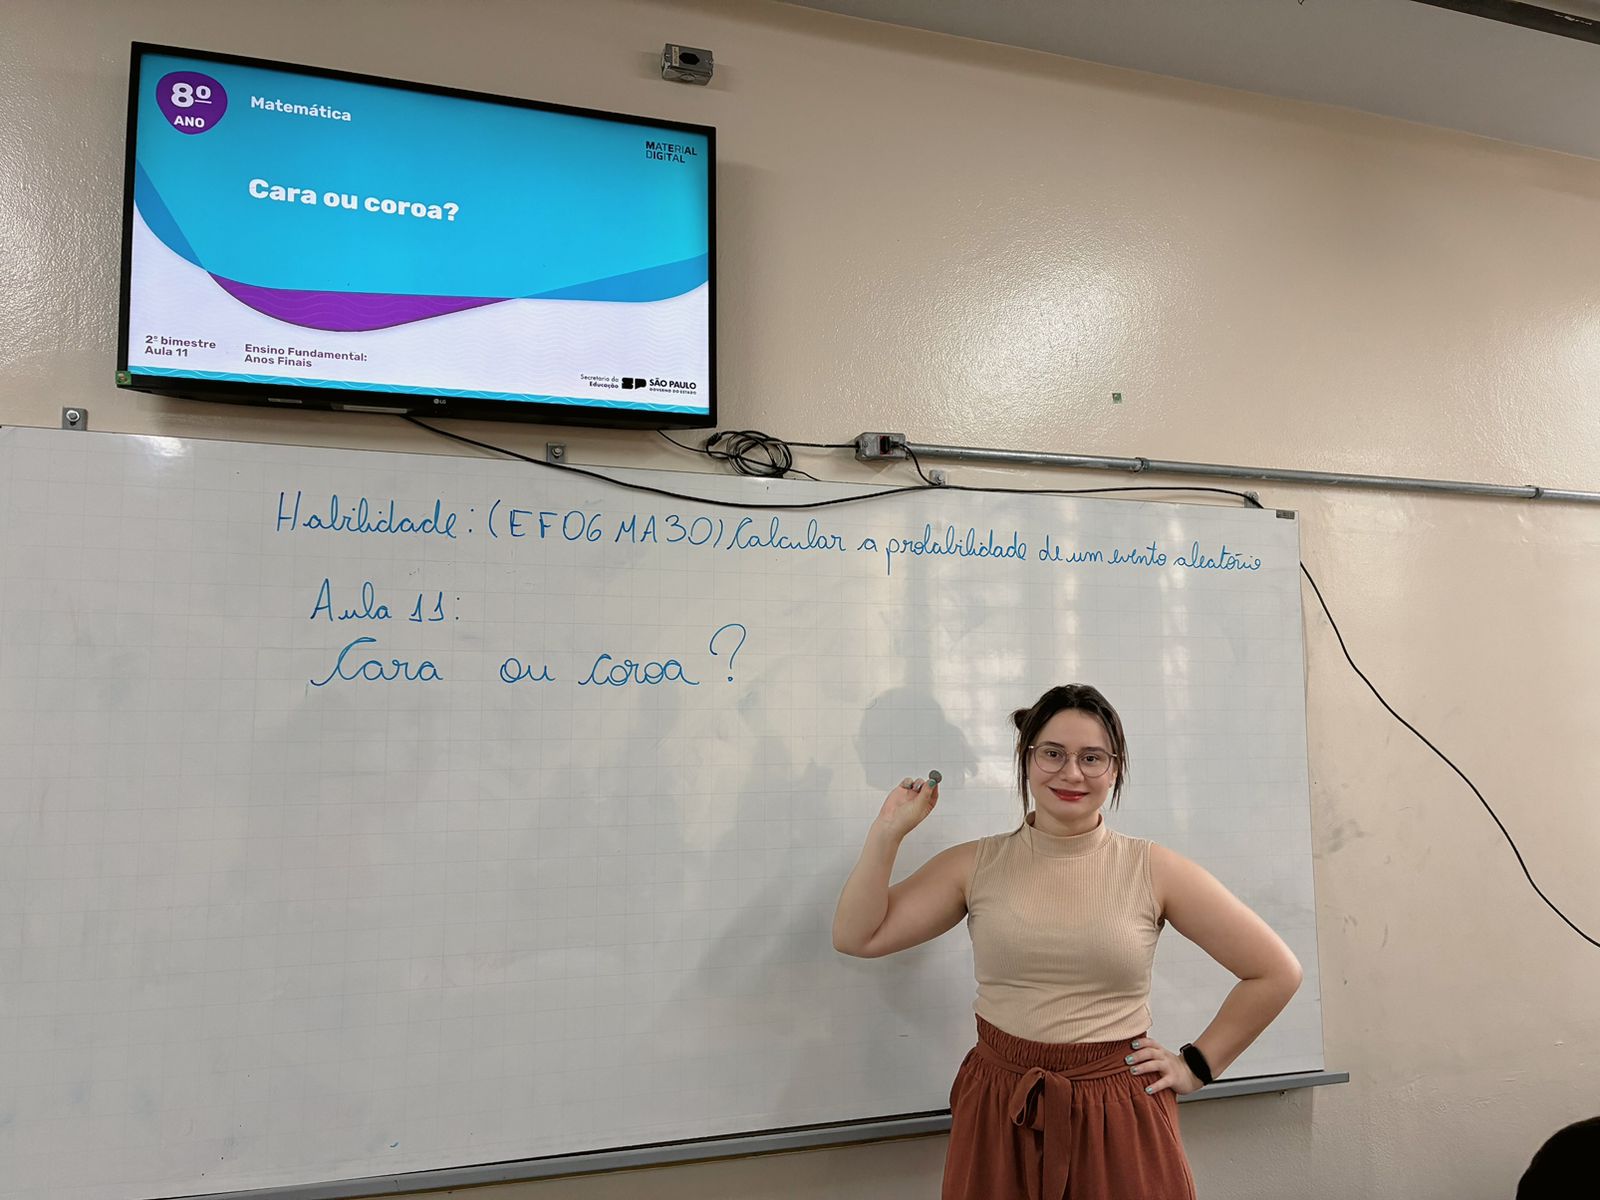 8º
ANO
Matemática
MATERIAL
DIGITAL
Cara ou coroa?
2º bimestre
Aula 11
Ensino Fundamental:
Anos Finais
Secretaria da
Educação
SP
SÃO PAULO
GOVERNO DO ESTADO
LG
Habilidade: (EF06MA30) Calcular a probabilidade de um evento aleatório
Aula 11:
Cara ou coroa?